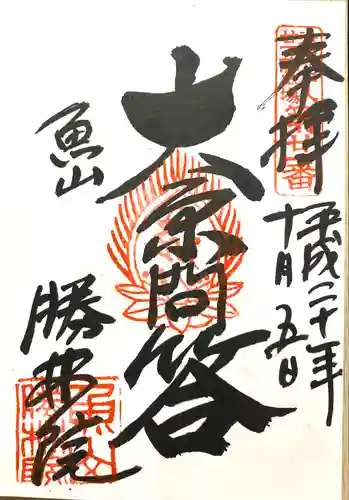 奉拝
平成二十年
十月五日
大原問答
魚山
勝林院